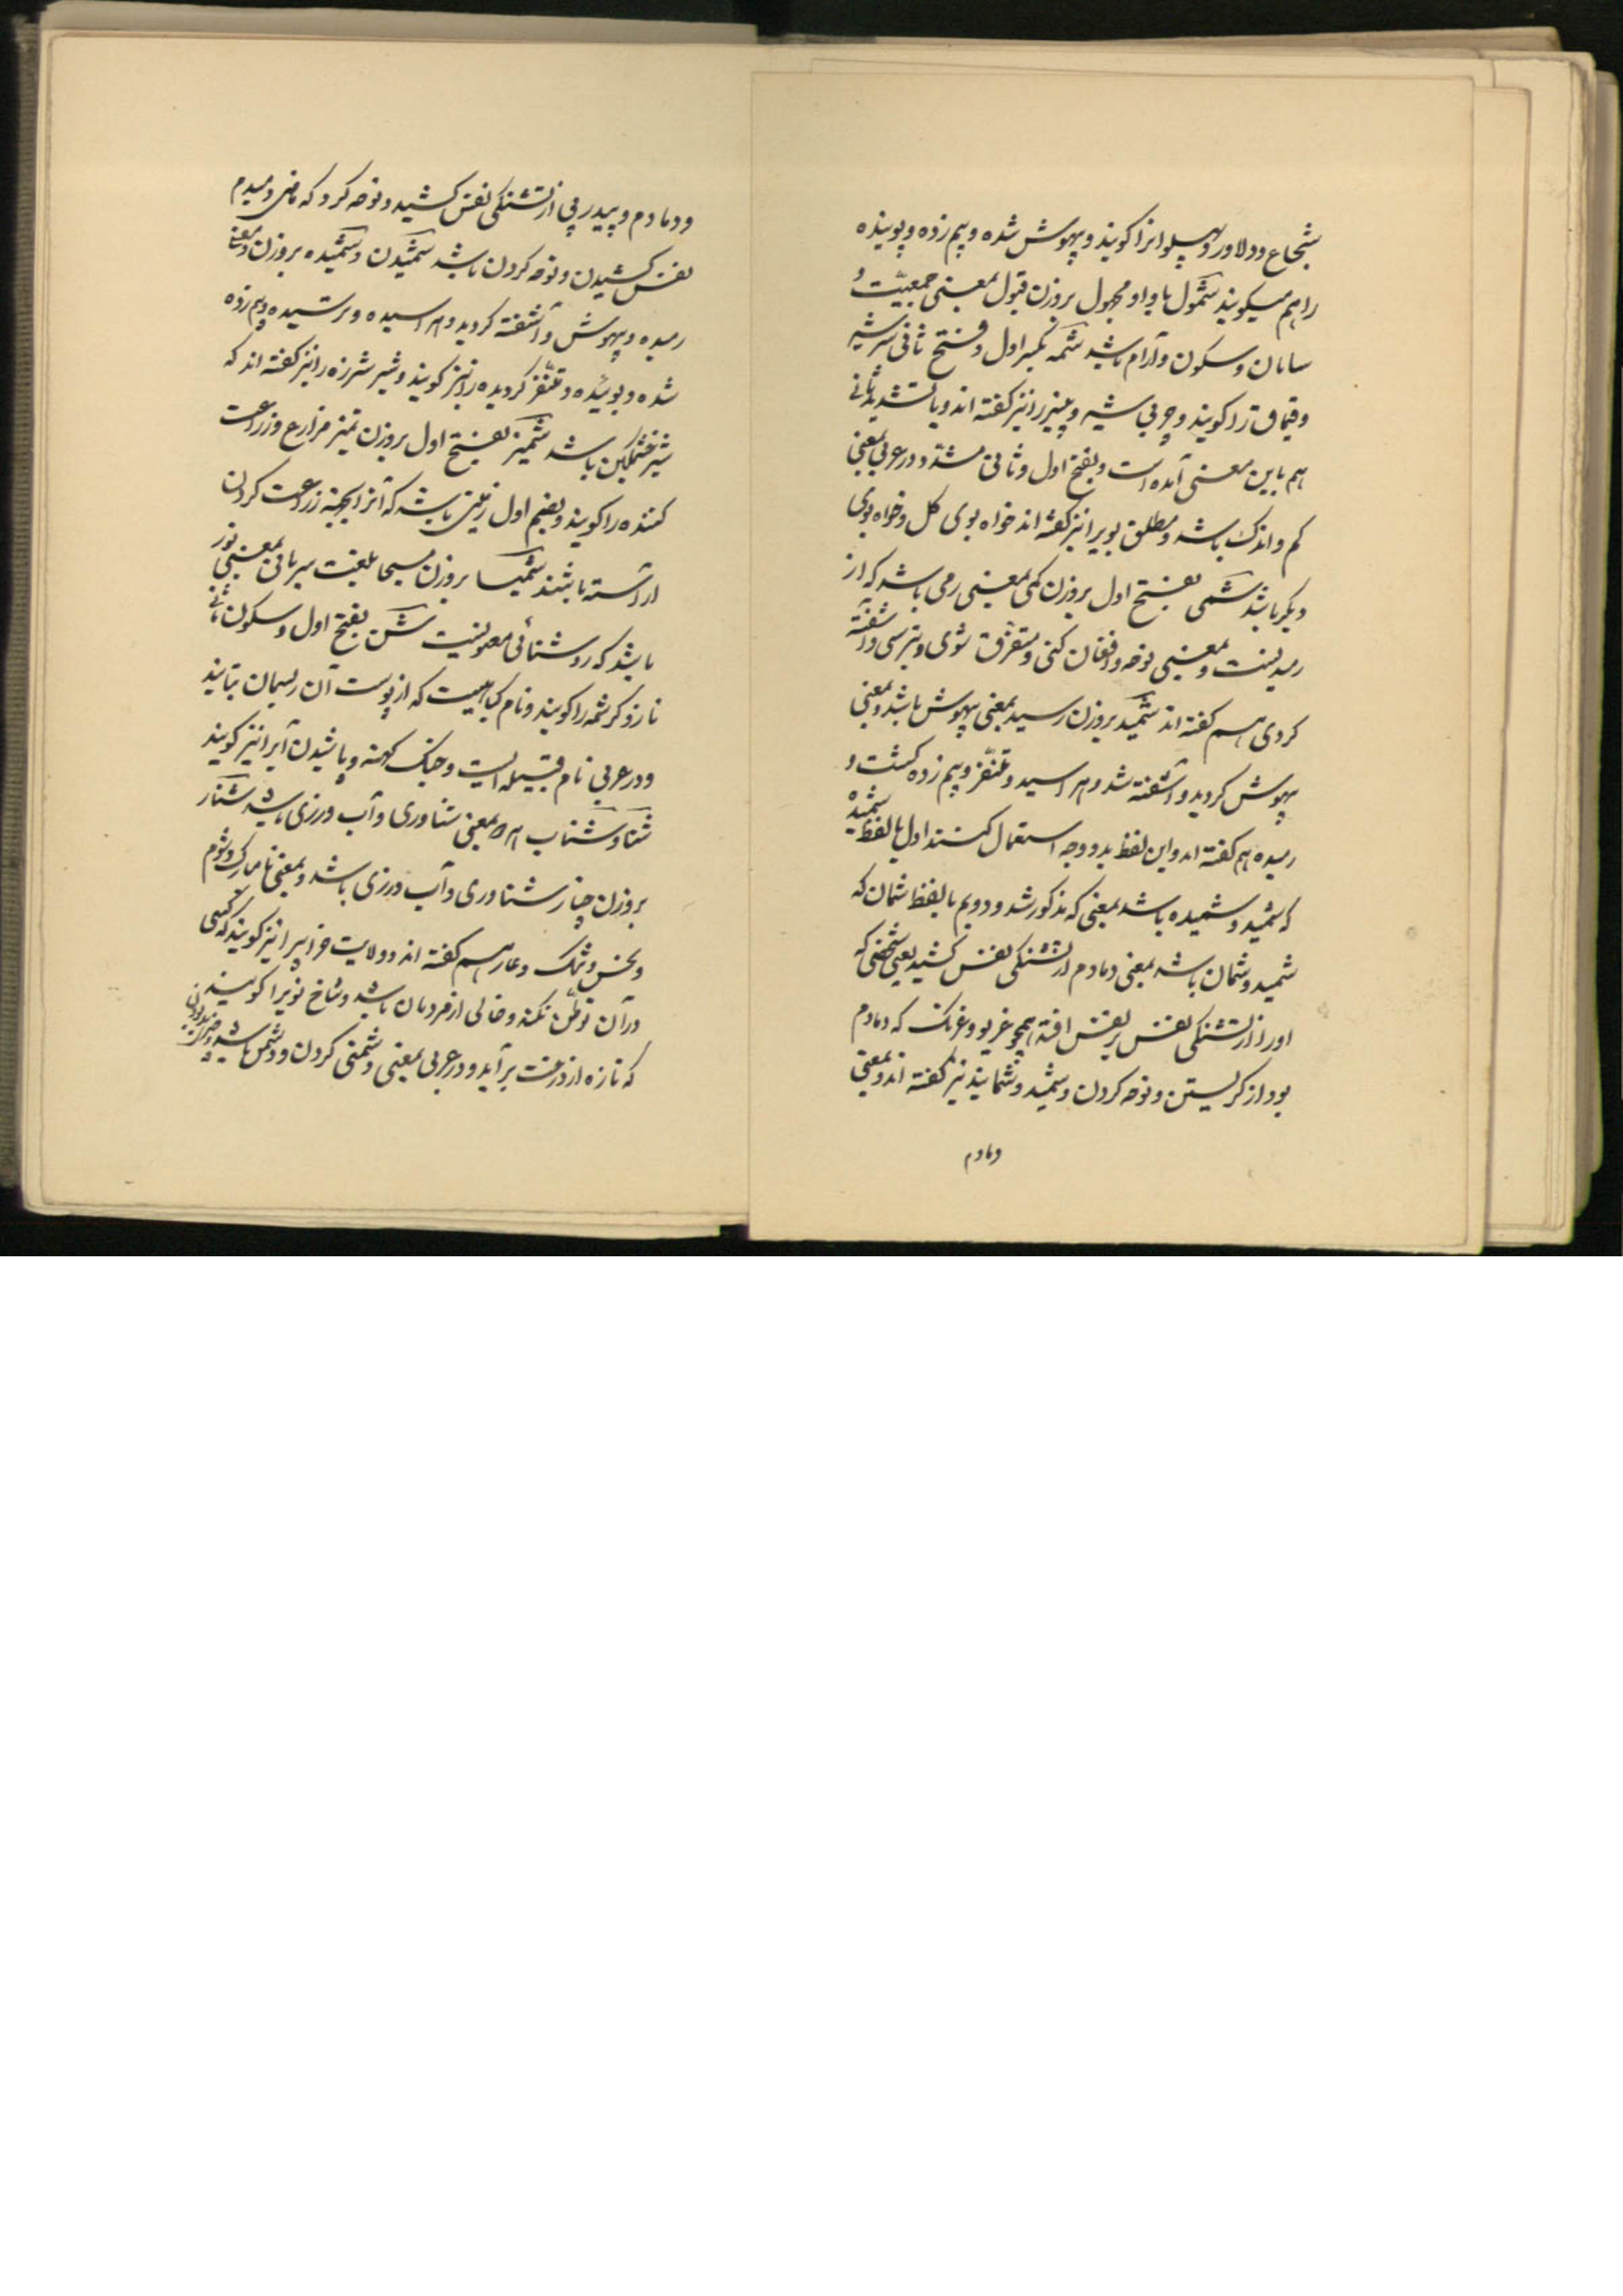 شجاع و دلاور و پهلوانرا کویند و بیهوش شده و بیم زده و پوینده
را هم میکویند شمول با واو مجهول بروزن قبول بمعنی جمعیّت و
سامان و سکون و آرام باشد شمه بکسر اول و فتح ثانی سرشیر
و قیماق را کویند و چربی شیر و پنیر را نیز کفته اند و با تشدید ثانی
هم باین معنی آمده است و بفتح اول و ثانی مشدد در عربی بمعنی
کم و اندک باشد و مطلق بویرا نیز کفته اند خواه بوی کل و خواه بوی
دیکر باشد شمی بفتح اول بروزن کمی بمعنی رمی باشد که از
رمیدنست و بمعنی نوحه و افغان کنی و متفرق شوی و بترسی و آشفته
کردی هم کفته اند شمید بروزن رسید بمعنی بیهوش باشد و بمعنی
بیهوش کردید و آشفته شد و هراسید و متنفّر و بیم زده کشت و
رمیده هم کفته اند و این لفظ بدو وجه استعمال کنند اول با لفظ شمیده
که شمید و شمیده باشد بمعنی که مذکور شد و دویم با لفظ شمان که
شمید و شمان باشد بمعنی دمادم از تشنکی نفس کشید یعنی شخصی که
او را از تشنکی نفس بر نفس افتد همچو غریو و غرنک که دمادم
بود از کریستن و نوحه کردن و شمید و شمانید نیز کفته اند و بمعنی
دمادم
و دمادم و پیدرپی از تشنکی نفس کشید و نوحه کرد که ماضی دمیدم
نفس کشیدن و نوحه کردن باشد شمیدن و شمیده بروزن و معنی
رمیده و بیهوش و آشفته کردید و هراسیده و ترسیده و بیم زده
شده و بوئیده و متنفّر کردیده را نیز کویند و شیر شرزه را نیز کفته اند که
شیر خشمکین باشد شمیز بفتح اول بروزن تمیز مزارع و زراعت
کننده را کویند و بضم اول زمینی باشد که آنرا بجهة زراعت کردن
آراسته باشند شمیسا بروزن مسیحا بلغت سریانی بمعنی نور
باشد که روشنائی معنویست شن بفتح اول و سکون ثانی
ناز و کرشمه را کویند و نام کیاهیست که از پوست آن ریسمان تابند
و در عربی نام قبیله ایست و خیک کهنه و پاشیدن آبرا نیز کویند
شنا و شناب هر دو بمعنی شناوری و آب ورزی باشد شنار
بروزن چنار شناوری و آب ورزی باشد و بمعنی نامبارک و شوم
و نحس و ننک و عار هم کفته اند و ولایت خرابرا نیز کویند که کسی
در آن توطّن نکند و خالی از مردمان باشد و شاخ نویرا کویند
که تازه از درخت برآید و در عربی بمعنی دشمنی کردن و دشمن باشد